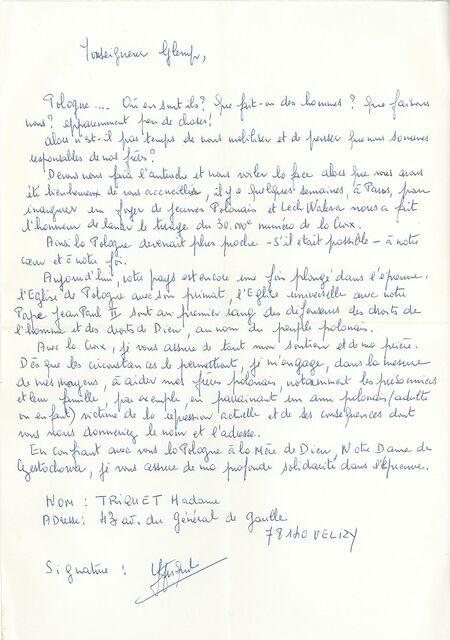 Monseigneur Glemp,
Pologne.... Où en sont ils? Que fait-on des hommes? Que faisons
nous? apparemment peu de choses!
alors n'est-il pas temps de nous mobiliser et de penser que nous sommes
responsables de nos frères?
Devons nous faire l'autruche et nous voiler la face alors que nous avons
été bienheureux de vous accueillir, il y a quelques semaines, à Paris, pour
inaugurer un foyer de jeunes Polonais et Lech Walesa nous a fait
l'honneur de lancer le tirage du 30.000e numéro de la Croix.
Ainsi la Pologne devenait plus proche - s'il était possible - à notre
cœur et à notre foi.
Aujourd'hui, votre pays est encore une fois plongé dans l'épreuve.
l'Eglise de Pologne avec son primat, l'Eglise universelle avec notre
Pape Jean Paul II sont au premier rang des défenseurs des droits de
l'homme et des droits de Dieu, au nom du peuple polonais.
Avec la Croix, je vous assure de tout mon soutien et de ma prière.
Dès que les circonstances le permettront, je m'engage, dans la mesure
de mes moyens, à aider mes frères polonais, notamment les prisonniers
et leur famille, par exemple, en parrainant un ami polonais (adulte
ou enfant) victime de la répression actuelle et de ses conséquences dont
vous nous donneriez le nom et l'adresse.
En confiant avec vous la Pologne à la Mère de Dieu, Notre Dame de
Czestochowa, je vous assure de ma profonde solidarité dans l'épreuve.
NOM : TRIQUET Madame
ADresse: 43 av. du Général de Gaulle
78140 VELIZY
Signature :